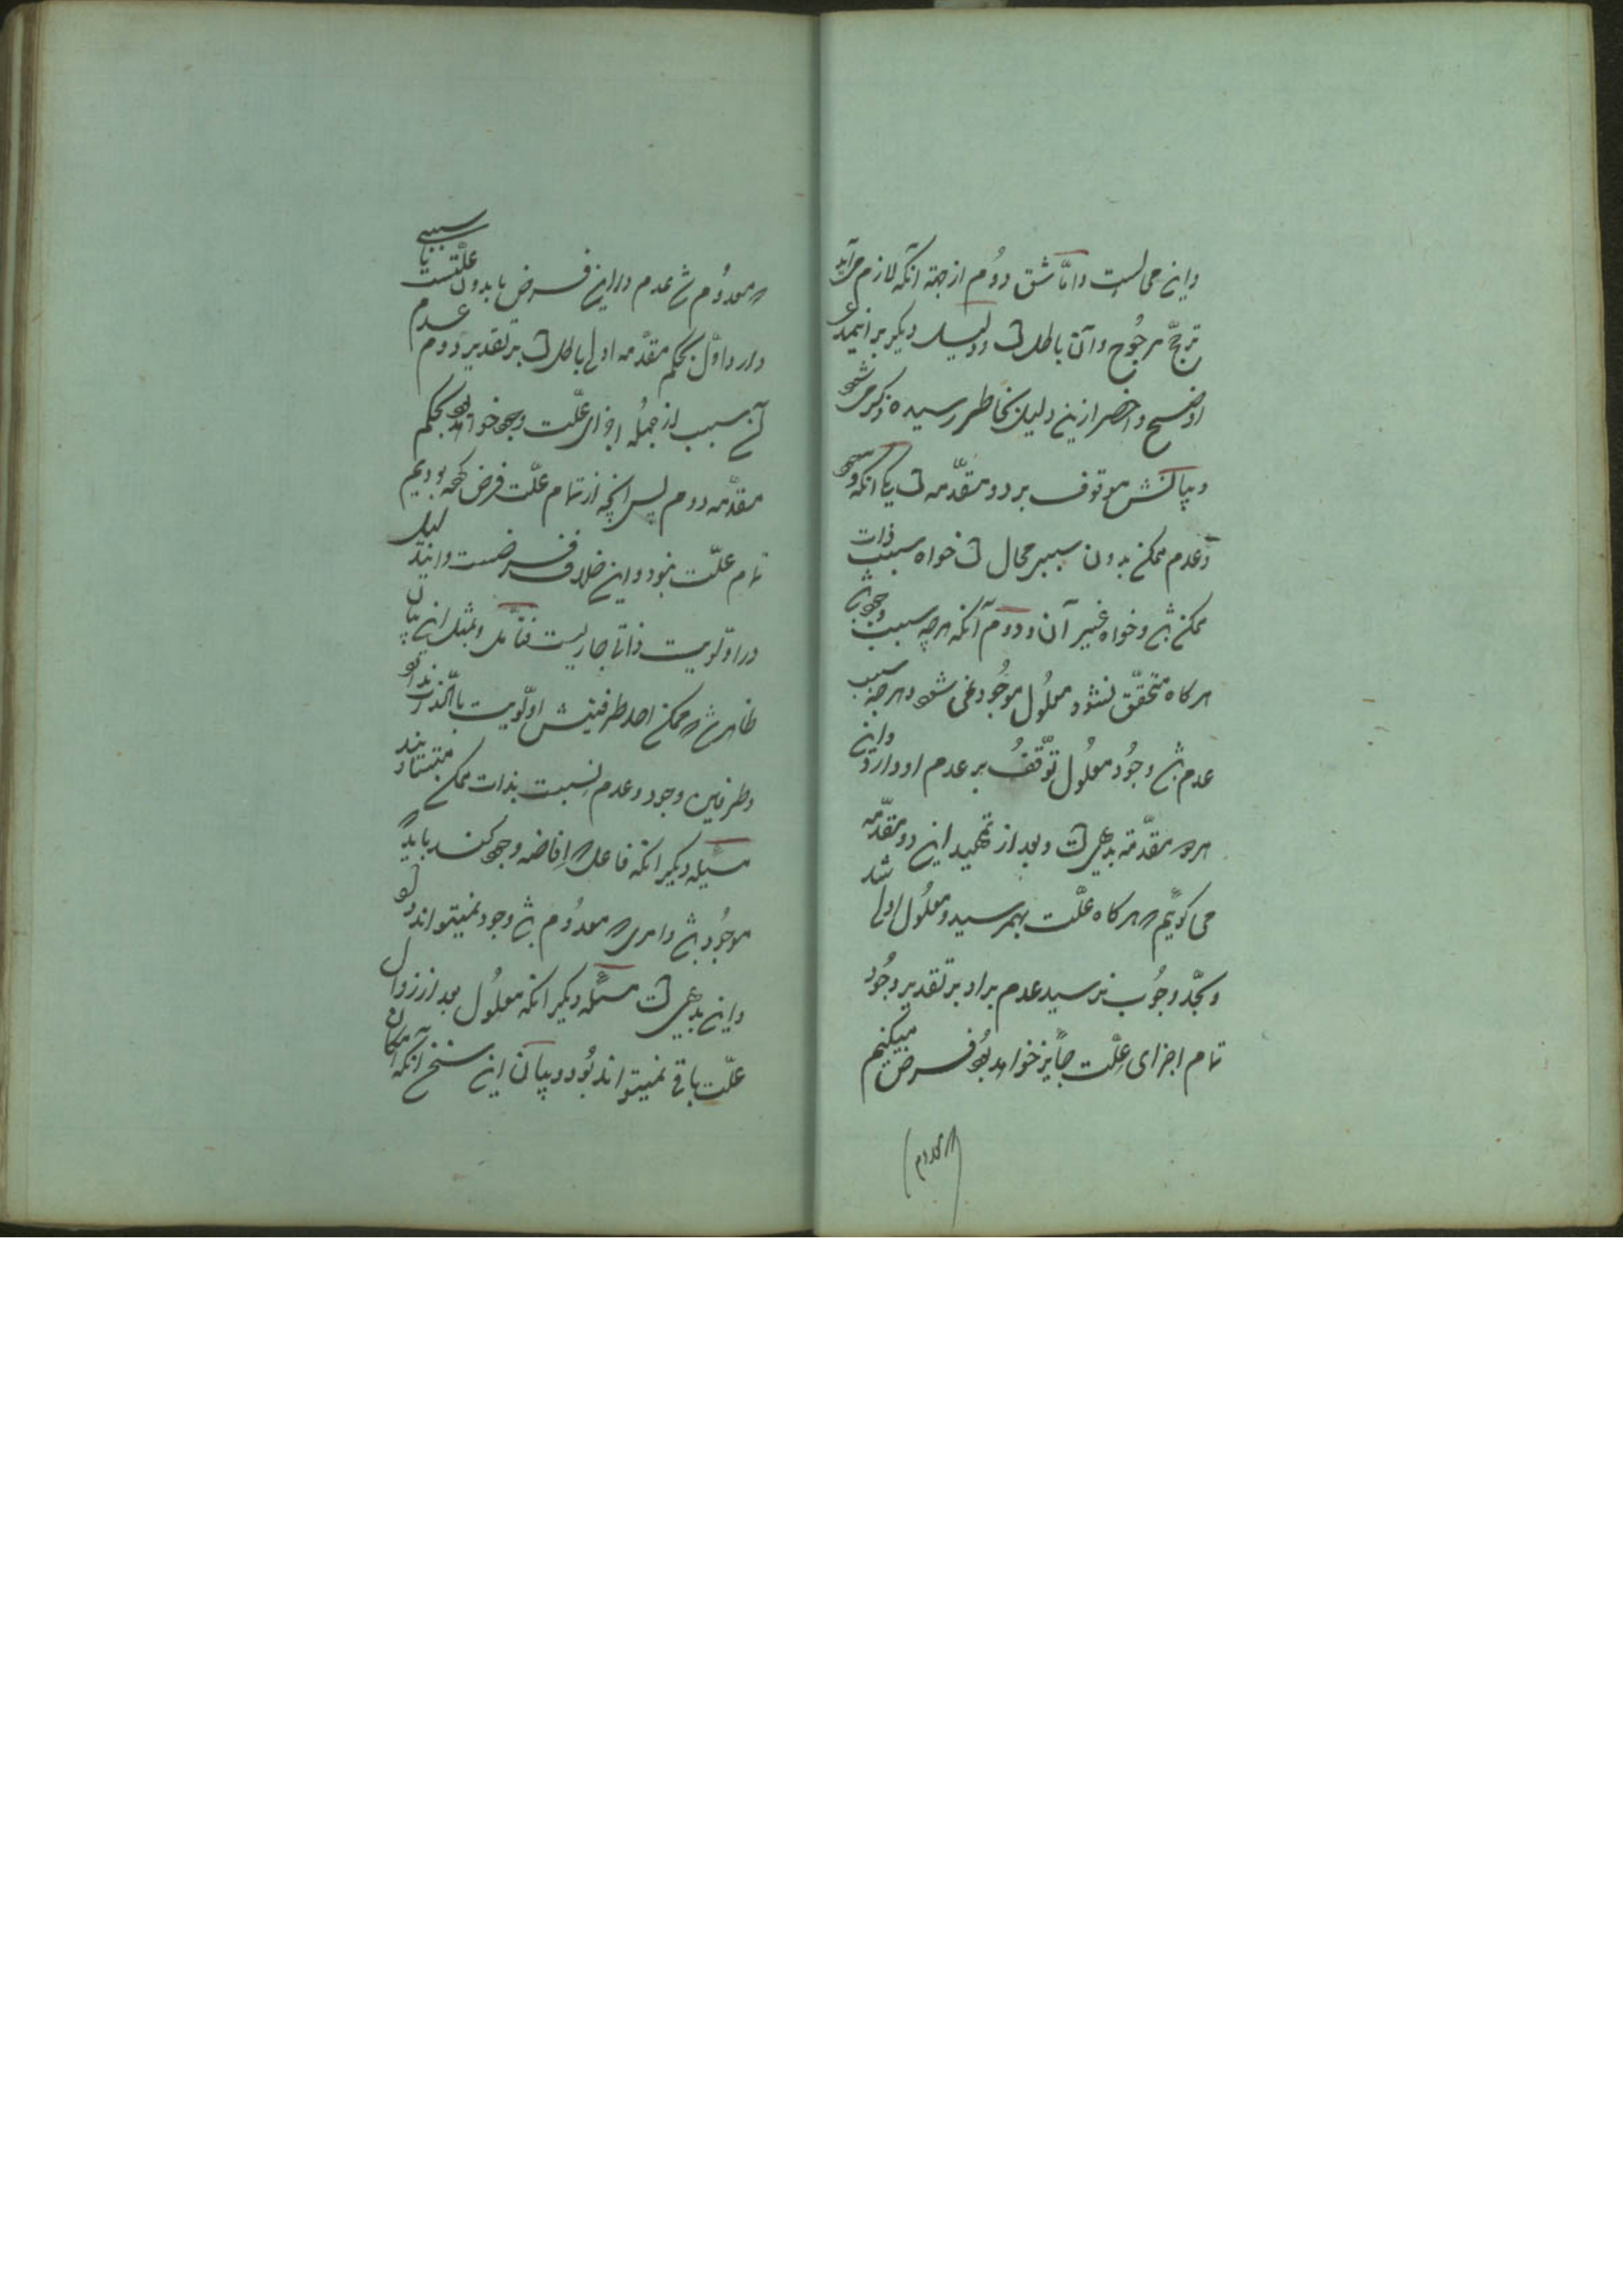 واین محالست واما شق دوم از جهة آنکه لازم می‌آید
ترجّح مرجوح وآن باطلست ودلیل دیگر بر این مدعا
اوضح واخصر ازین دلیل بخاطر رسیده ذکر می‌شود
وبیانش موقوف بر دو مقدّمه است یکی آنکه وجود
وعدم ممکن بدون سببی محال است خواه سبب ذات
ممکن باشد وخواه غیر آن ودوم آنکه هرچه سبب وجود باشد
هرگاه متحقّق نشود معلول موجود نمی شود وهرچه سبب
عدم باشد وجود معلول توقّف بر عدم او دارد واین
هر دو مقدّمه بدیهی است وبعد از تمهید این دو مقدّمه
می گوئیم که هرگاه علّت بهمرسید ومعلول اولی شد
وبحدّ وجوب نرسید عدم بر او بر تقدیر وجود
تمام اجزای علّت جایز خواهد بود فرض میکنیم
که معدوم
که معدوم شد عدم در این فرض یا بدون علّتست یا سببی
دارد اوّل بحکم مقدّمه اولی باطل است بر تقدیر دوم عدم
آن سبب از جمله اجزای علّت وجود خواهد بود بحکم
مقدّمه دوم پس آنچه از تمام علّت فرض کرده بودیم
تمام علّت نبود واین خلاف فرضست واین دلیل
در اولویت ذاتی جاریست فتأمل وبمثل این بیان
ظاهر شد که ممکن احد طرفینش اولویت بالذات ندارد
وطرفین وجود وعدم نسبت بذات ممکن متساویند
مسئله دیگر آنکه فاعل که افاضه وجود کند باید
موجود باشد وامری که معدوم باشد وجود نمیتواند داد
واین بدیهی است مسئله دیگر آنکه معلول بعد از زوال
علّت باقی نمیتواند بود وبیان این سخن آنکه امکان